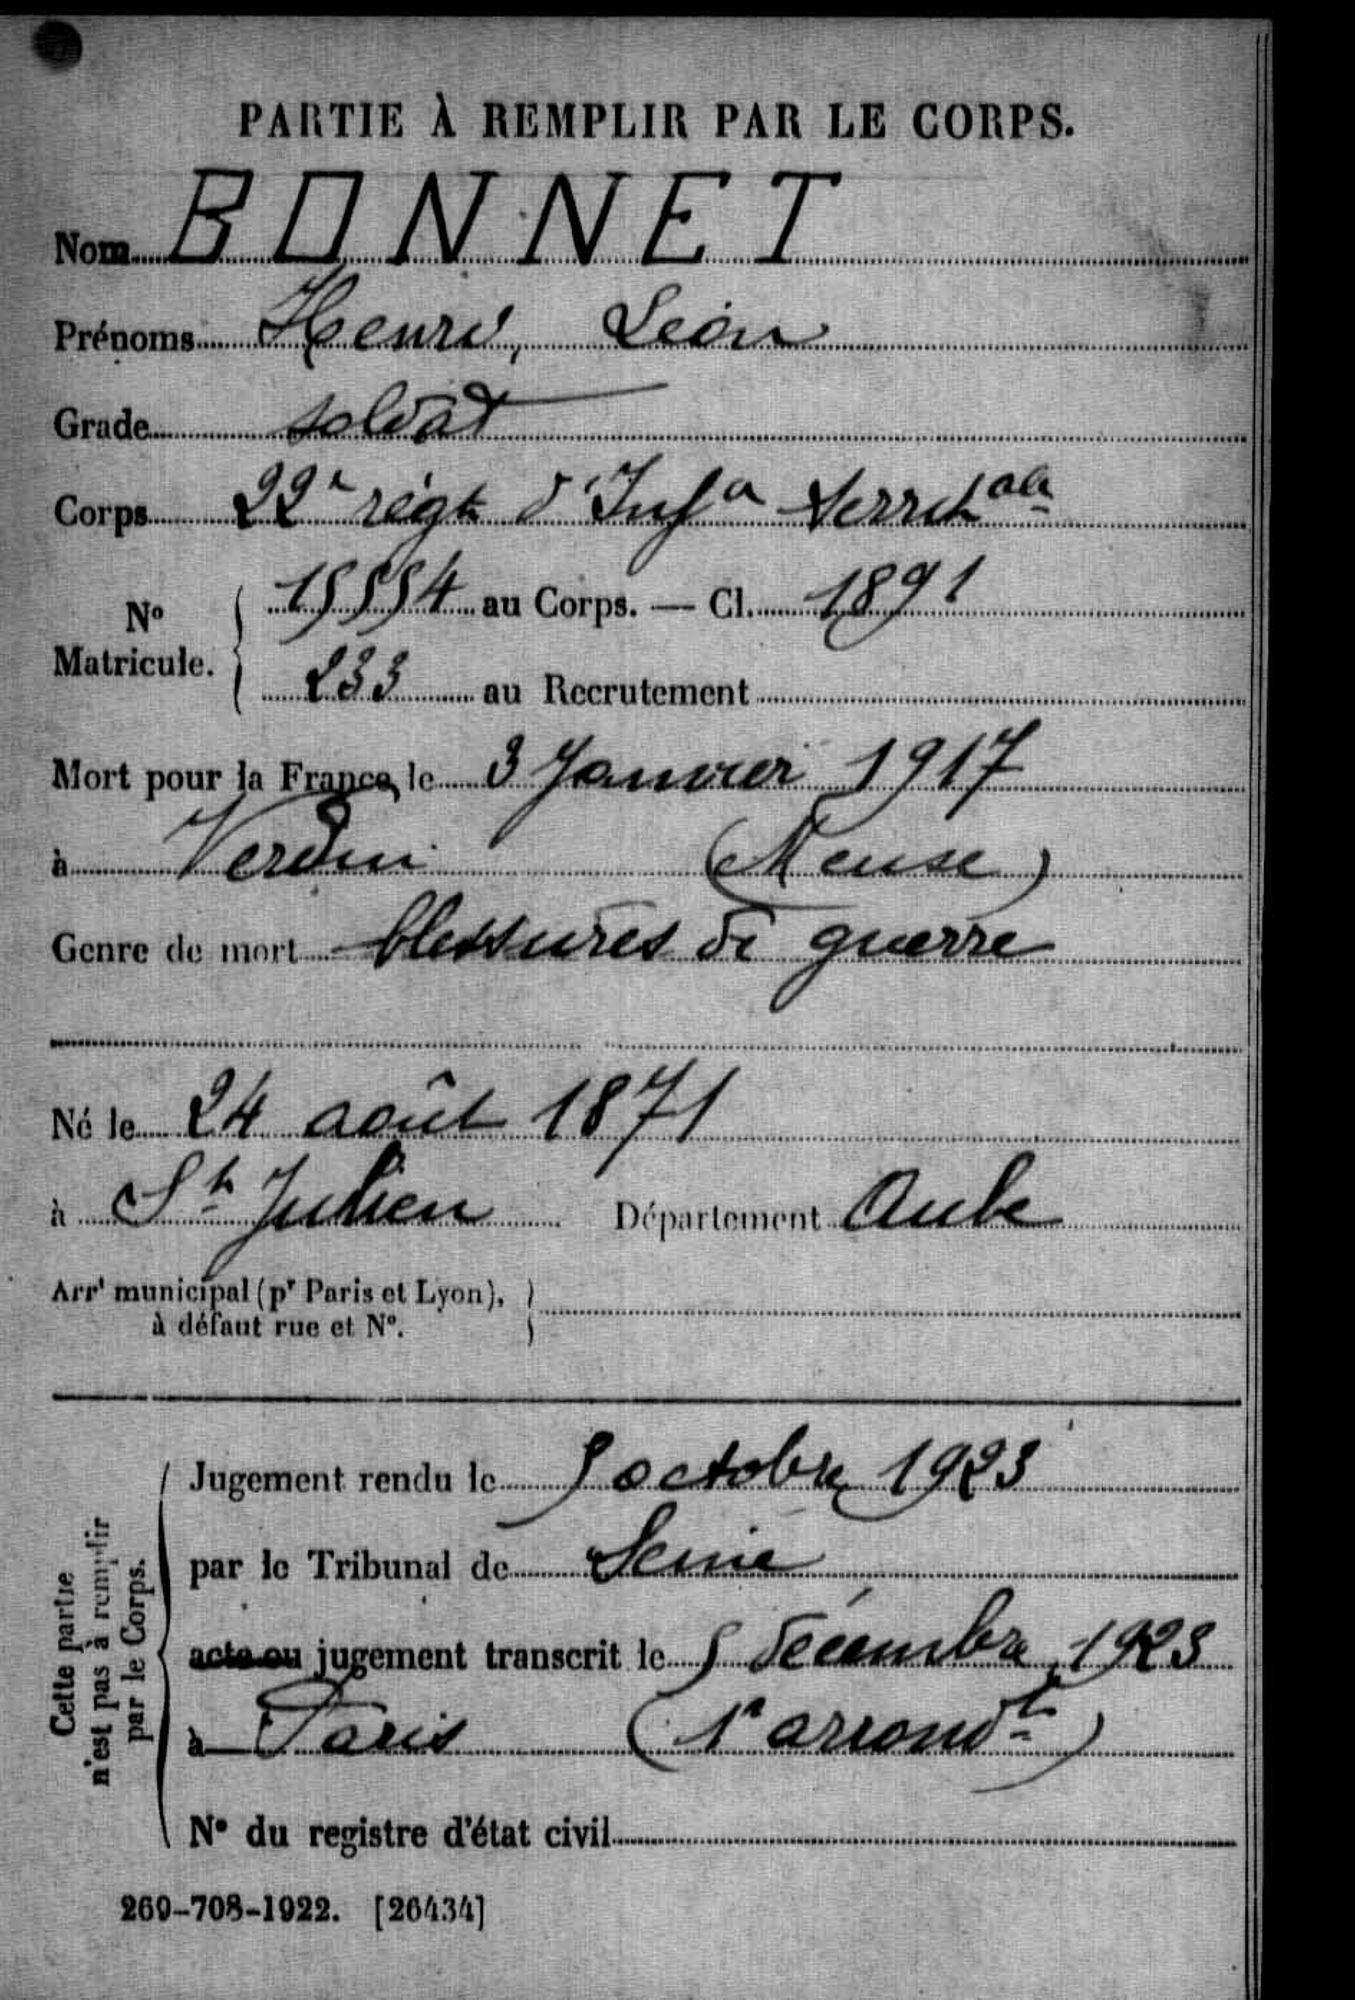 PARTIE À REMPLIR PAR LE CORPS.
Nom BONNET
Prénoms Henri, Léon
Grade soldat
Corps 22e régt d'Infa territale
No Matricule. 15554 au Corps. — Cl. 1891
233 au Recrutement
Mort pour la France le 3 Janvier 1917
à Verdun (Meuse)
Genre de mort blessures de guerre
Né le 24 août 1871
à St Julien Département Aube
Arrt municipal (pr Paris et Lyon),
à défaut rue et No.
Cette partie
n'est pas à remplir
par le Corps.
Jugement rendu le 5 octobre 1923
par le Tribunal de Seine
acte ou jugement transcrit le 5 décembre 1923
à Paris (1r arrondt)
No du registre d'état civil
269-708-1922. [26434]